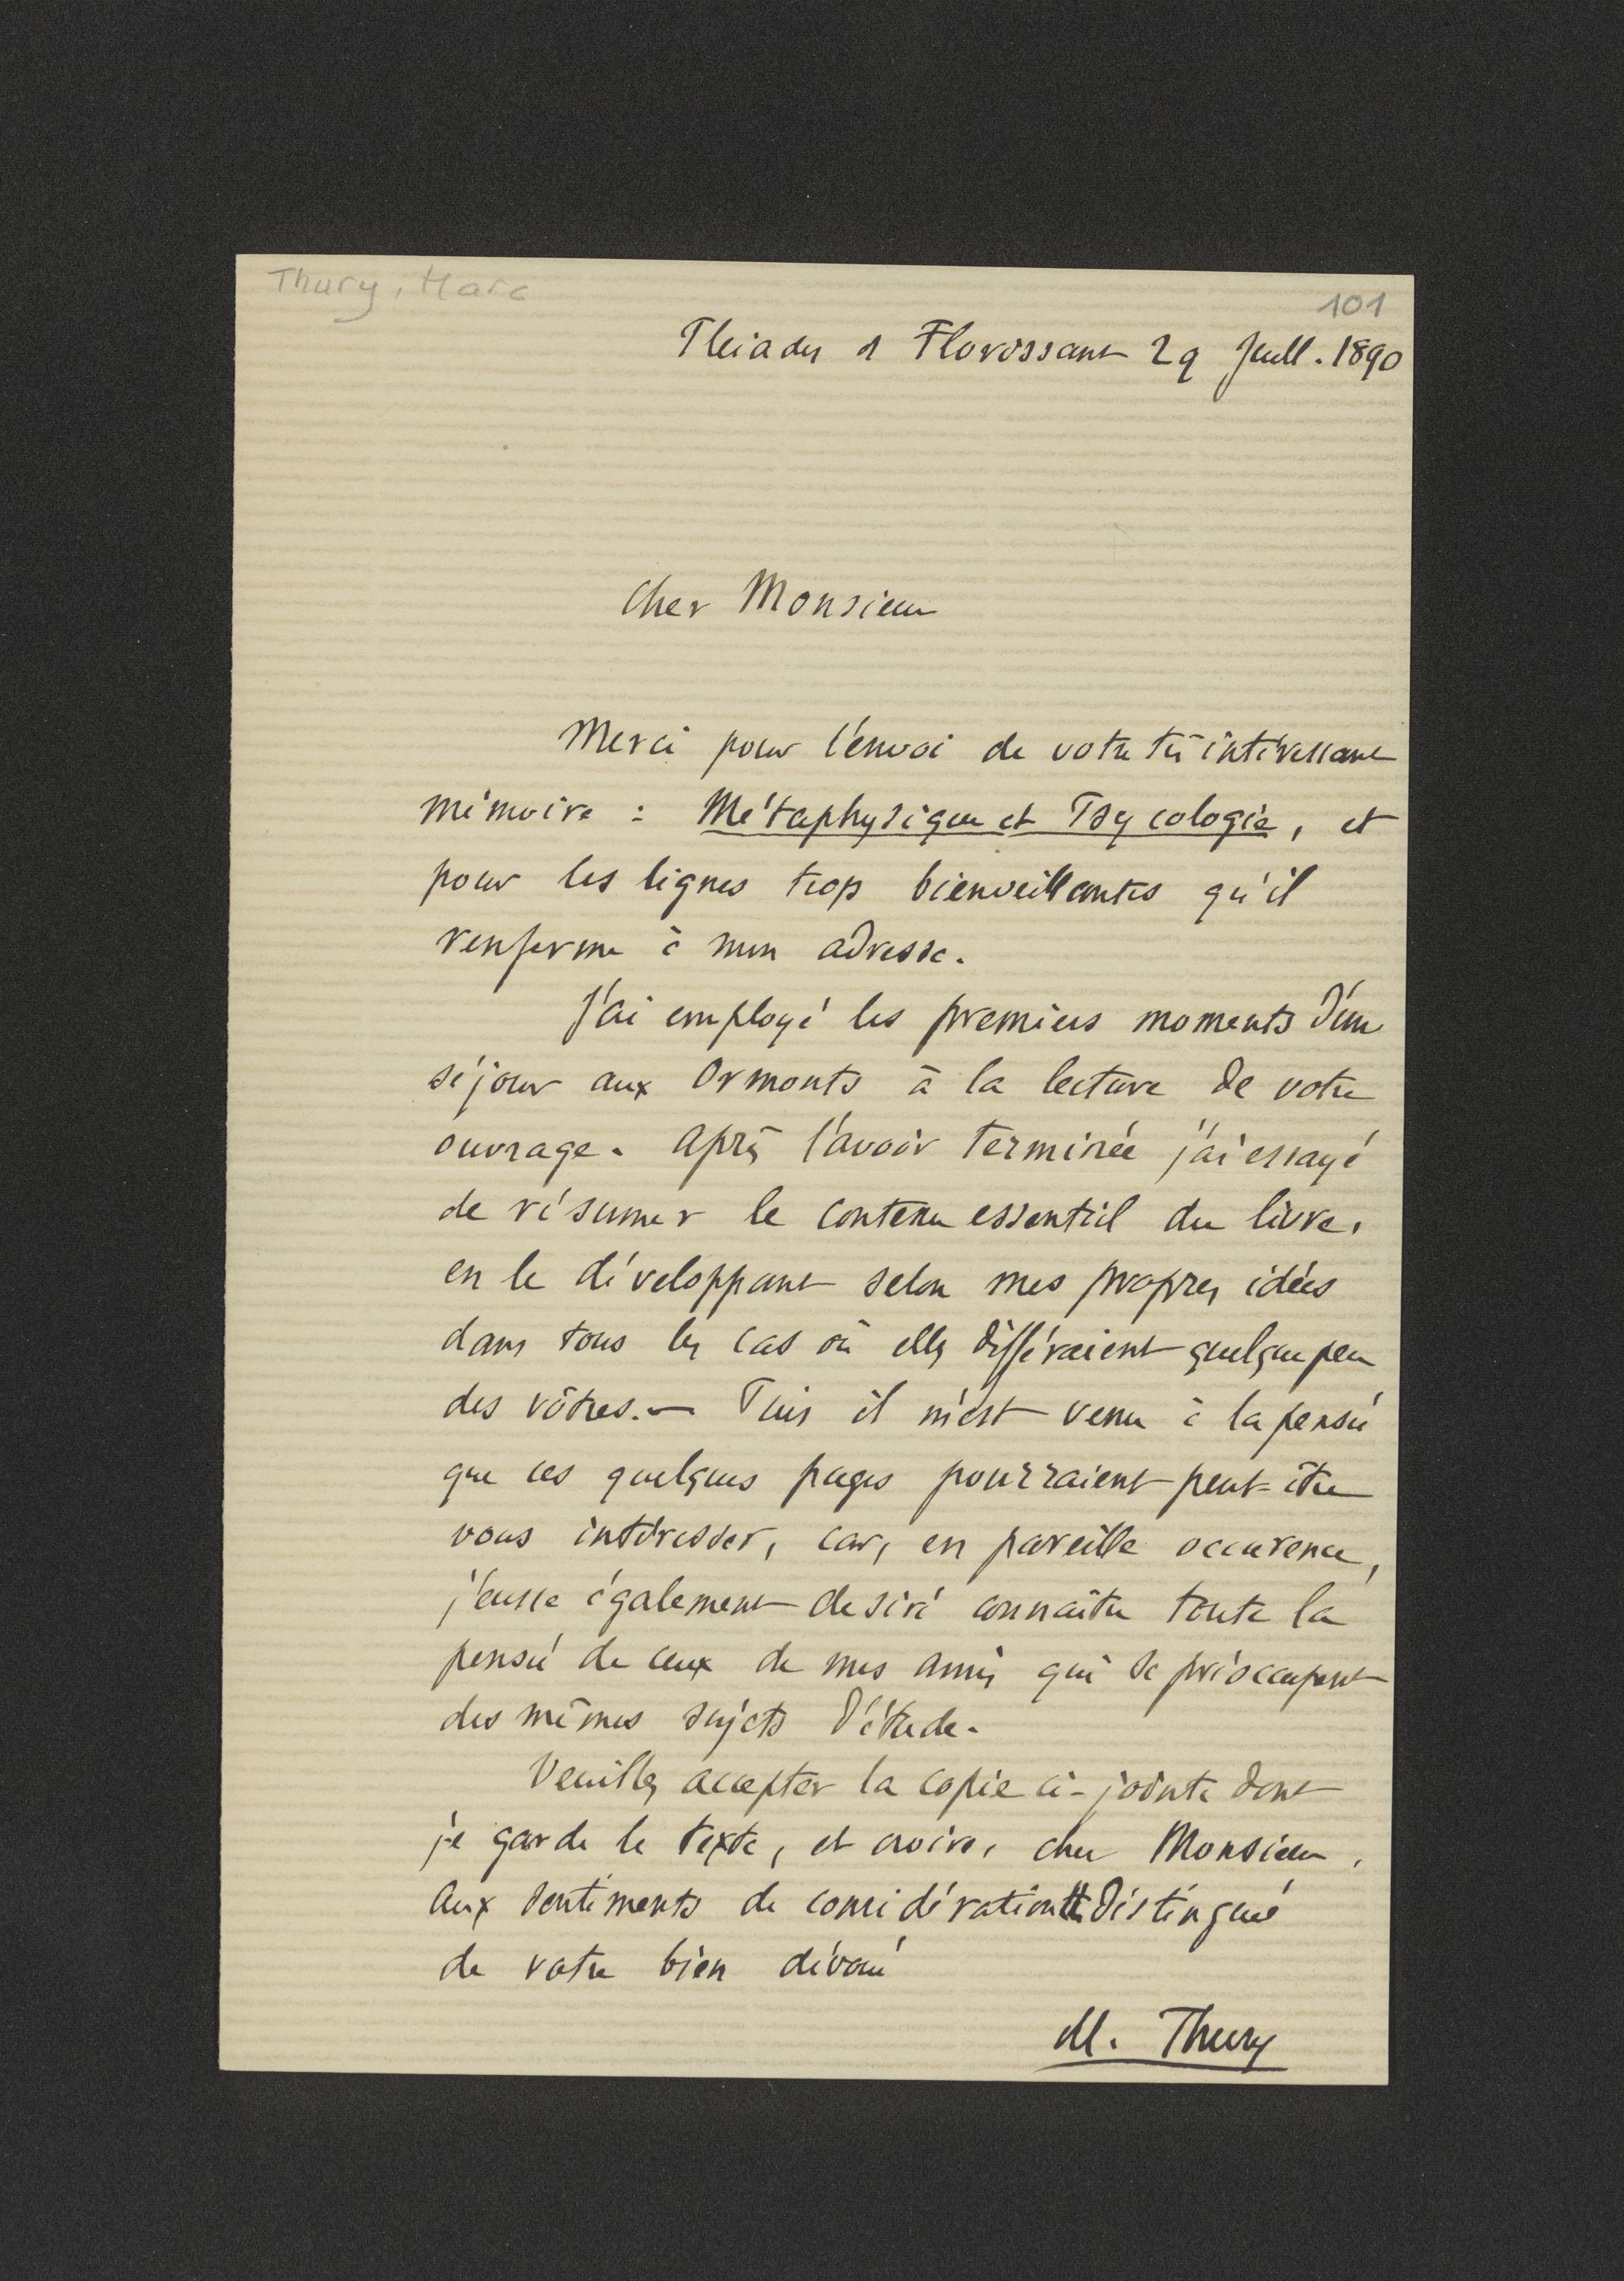 Thury, Marc
101
Pleiades 1 Florissant 29 Juill. 1890
Cher Monsieur
Merci pour l'envoi de votre très intéressant
mémoire : Métaphysique et Psycologie, et
pour les lignes trop bienveillantes qu'il
renferme à mon adresse.
J'ai employé les premiers moments d'un
séjour aux Ormonts à la lecture de votre
ouvrage. Après l'avoir terminée j'ai essayé
de résumer le contenu essentiel du livre,
en le développant selon mes propres idées
dans tous les cas où elles différaient quelque peu
des vôtres. — Puis il m'est venu à la pensée
que ces quelques pages pourraient peut-être
vous intéresser, car, en pareille occurence,
j'eusse également desiré connaître toute la
pensée de ceux de mes amis qui se préoccupent
des mêmes sujets d'étude.
Veuillez accepter la copie ci-jointe dont
je garde le texte, et croire, cher Monsieur,
aux sentiments de considération distinguée
de votre bien dévoué
M. Thury